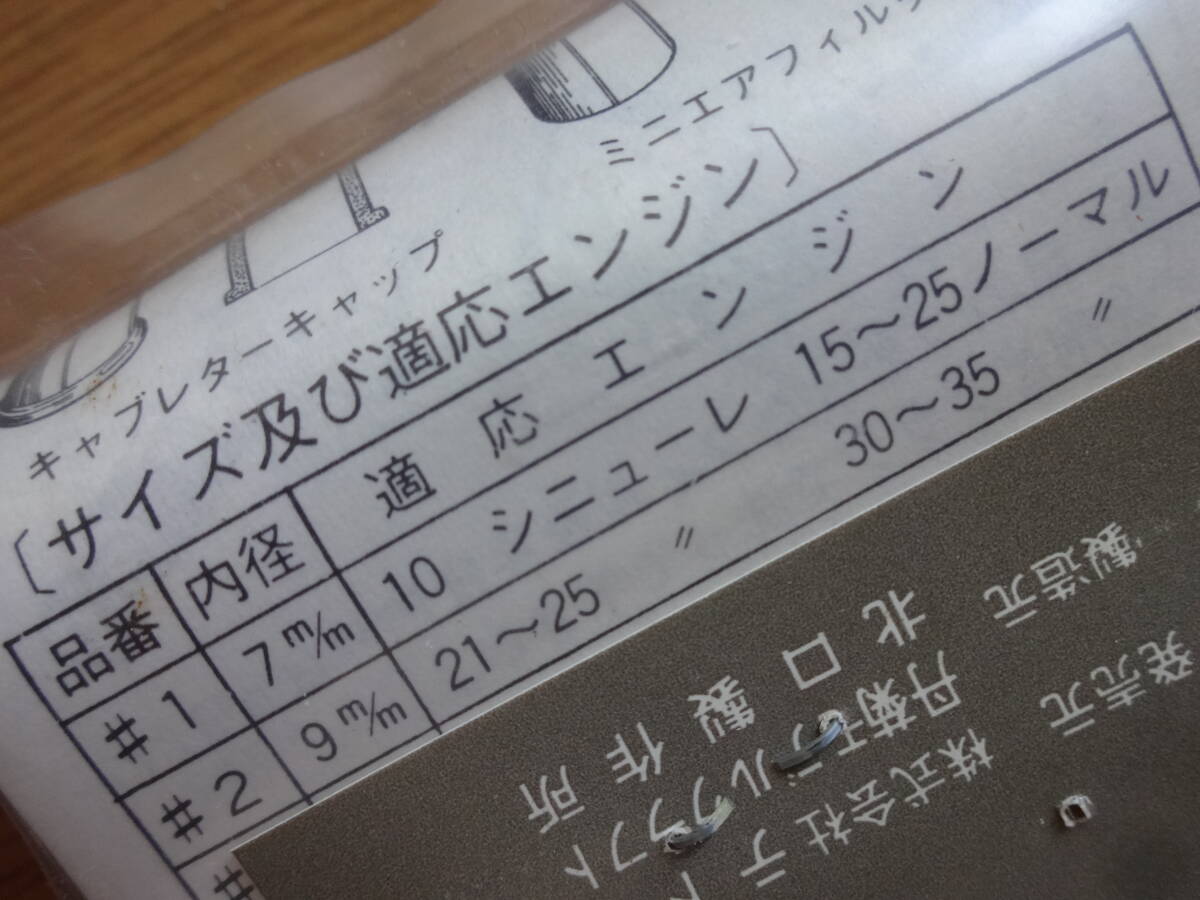 ミニエアフィル
キャブレターキャップ
〔サイズ及び適応エンジン〕
品番 内径 適応エンジン
#1 7m/m 10 シニューレ 15〜25ノーマル
#2 9m/m 21〜25 〃 30〜35 〃
#
製造元 北口製作所
発売元 丹菊モデルクラフト
株式会社